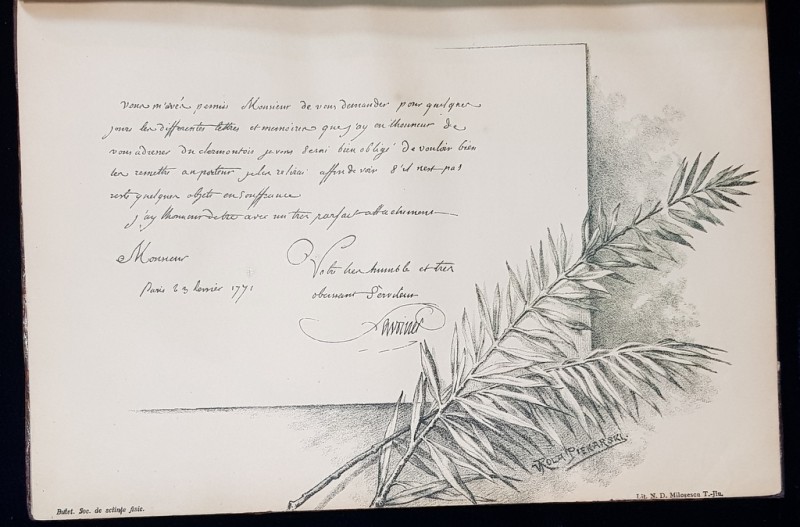 Vous m'avés permis Monsieur de vous demander pour quelques
jours les differentes lettres et memoires que j'ay eu lhonneur de
vous adresser du clermontois je vous serai bien obligé de vouloir bien
les remettre au porteur je les relirai affin de voir s'il nest pas
resté quelques objets en souffrance
j'ay lhonneur detre avec un tres parfait attachement
Monsieur
Votre tres humble et tres
obeissant Serviteur
Paris 23 fevrier 1771
Lavoisier
V. ROLA PIEKARSKI.
Bulet. Soc. de sciințe fizic.
Lit. N. D. Miloșescu T.-Jiu.